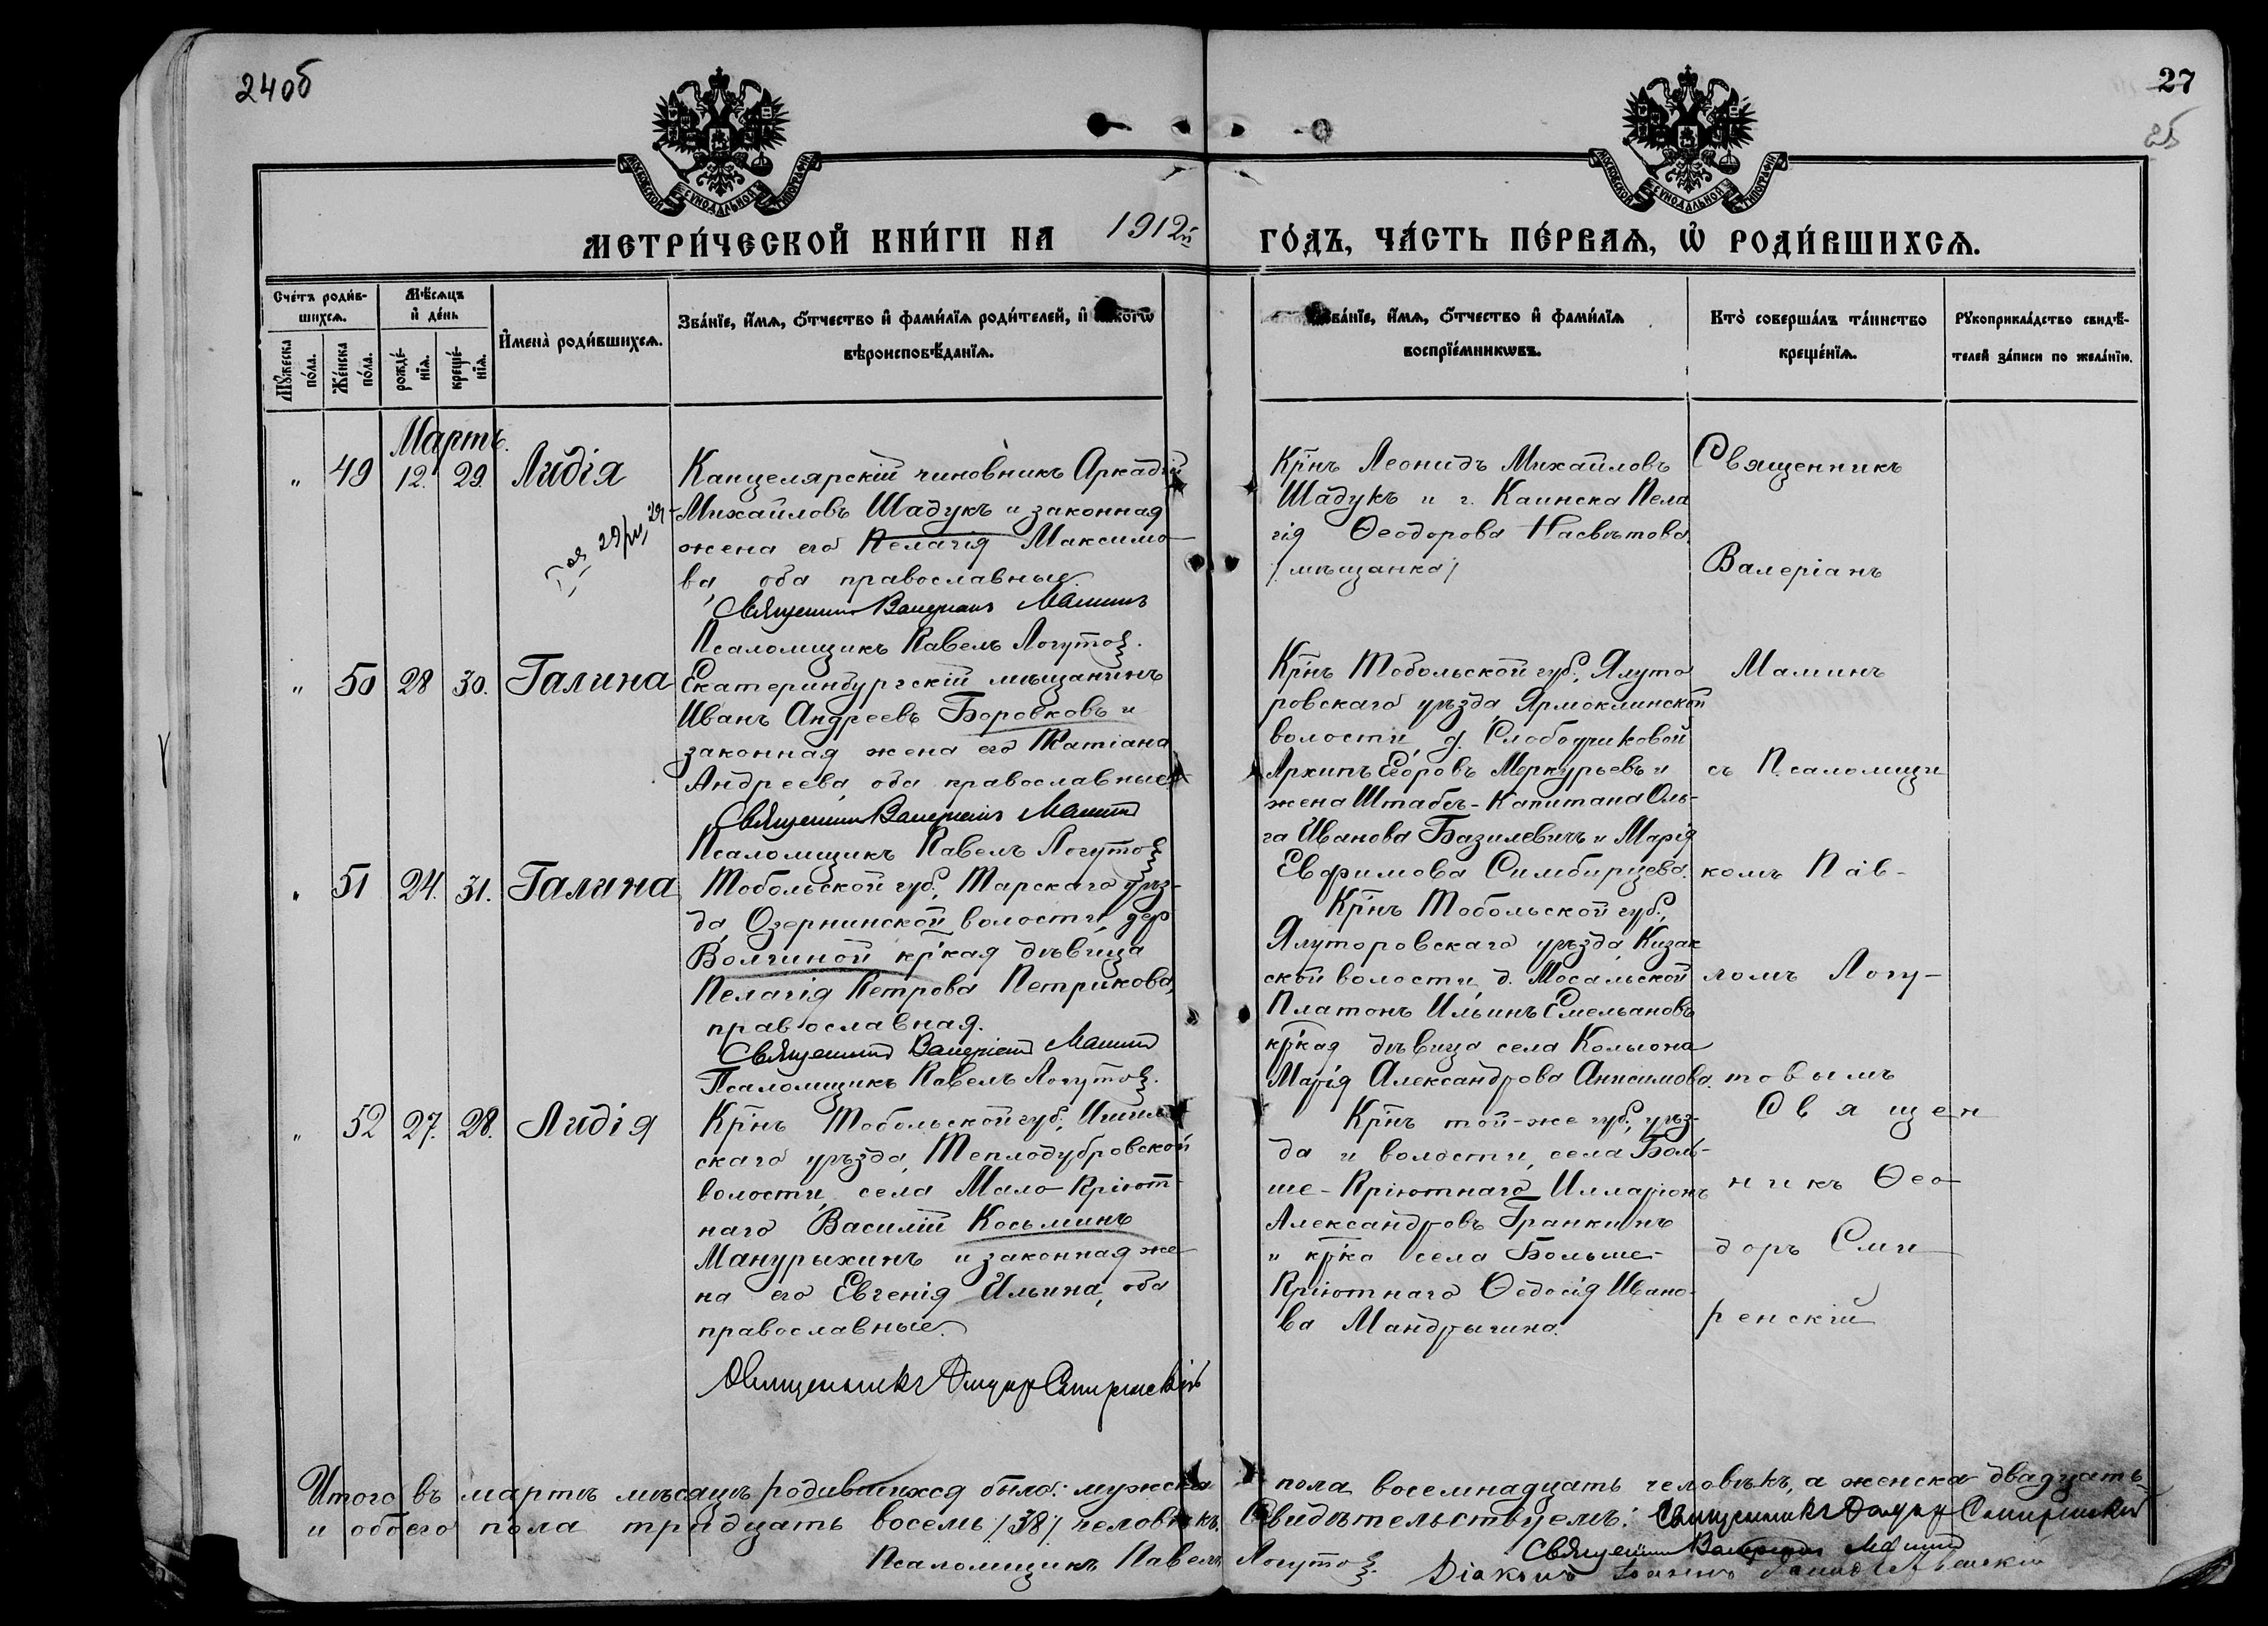 24об
27
25
МОСКОВСКОЙ СѴНОДАЛЬНОЙ ТИПОГРАФІИ
МОСКОВСКОЙ СѴНОДАЛЬНОЙ ТИПОГРАФІИ
МЕТРИ́ЧЕСКОЙ КНИ́ГИ НА 1912й ГО́ДЪ, ЧА́СТЬ ПЕ́РВАѦ, Ѡ҆ РОДИ́ВШИХСѦ.
Сче́тъ роди́в-
шихсѧ.
Мꙋ́жеска по́ла.
Же́нска по́ла.
Мѣ́сѧцъ
и҆ де́нь
рожде́-
нїѧ.
креще́-
нїѧ.
И҆мена̀ роди́вшихсѧ.
Зва́нїе, и҆́мѧ, ѻ҆́тчество и҆ фами́лїѧ роди́телей, и҆ како́гѡ
вѣроисповѣ́данїѧ.
Зва́нїе, и҆́мѧ, ѻ҆́тчество и҆ фами́лїѧ
воспрїе́мникѡвъ.
Кто̀ соверша́лъ та́инство
креще́нїѧ.
Рꙋкоприкла́дство свидѣ́-
телей за́писи по жела́нїю.
Мартъ.
" 49 12. 29. Лидія
Канцелярскій чиновникъ Аркадій
Михайловъ Шадукъ и законная
жена его Пелагія Максимо-
ва, оба православные.
Священникъ Валеріанъ Маминъ
Псаломщикъ Павелъ Логутовъ.
Кр̃нъ Леонидъ Михайловъ
Шадукъ и г. Каинска Пела
гія Ѳеодорова Насвѣтова
/мѣщанка/
Священникъ
Валеріанъ
" 50 28 30. Галина
Екатеринбургскій мѣщанинъ
Иванъ Андреевъ Боровковъ и
законная жена его Татіана
Андреева, оба православные
Священникъ Валеріанъ Маминъ
Псаломщикъ Павелъ Логутовъ
Кр̃нъ Тобольской губ., Ялуто
ровскаго уѣзда, Ярмоклинской
волости, д. Слободчиковой
Архипъ Егоровъ Меркурьевъ и
жена Штабсъ-Капитана Оль-
га Иванова Базилевичъ и Марія
Евфимова Симбирцева.
Маминъ
съ Псаломщи
комъ Пав-
" 51 24. 31. Галина
Тобольской губ., Тарскаго уѣз-
да, Озернинской волости, дер
Волгиной кр̃кая дѣвица
Пелагія Петрова Петрикова,
православная.
Священникъ Валеріанъ Маминъ
Псаломщикъ Павелъ Логутовъ.
Кр̃нъ Тобольской губ.,
Ялуторовскаго уѣзда, Кизак
ской волости, д. Мосальской
Платонъ Ильинъ Емельановъ
кр̃кая дѣвица села Колыона
Марія Александрова Анисимова.
ломъ Логу-
товымъ
" 52 27. 28. Лидія
Кр̃нъ Тобольской губ., Ишим-
скаго уѣзда, Теплодубровской
волости, села Мало-Пріют-
наго Василій Косьминъ
Манурыхинъ и законная же
на его Евгенія Ильина, оба
православные.
Кр̃нъ той-же губ., уѣз-
да и волости, села Боль-
ше-Пріютнаго Илларіонъ
Александровъ Гранкинъ
и кр̃ка села Больше-
Пріютнаго Ѳедосія Ивано-
ва Мандрыгина.
Священ
никъ Ѳео
доръ Сми
ренскій
Итого въ мартѣ мѣсяцѣ родившихся было: мужска пола восемнадцать человѣкъ, а женска двадцать
и обоего пола тридцать восемь /38/ человѣкъ. Свидѣтельствуемъ:
Священникъ Валеріанъ Маминъ
Псаломщикъ Павелъ Логутовъ.
Діаконъ